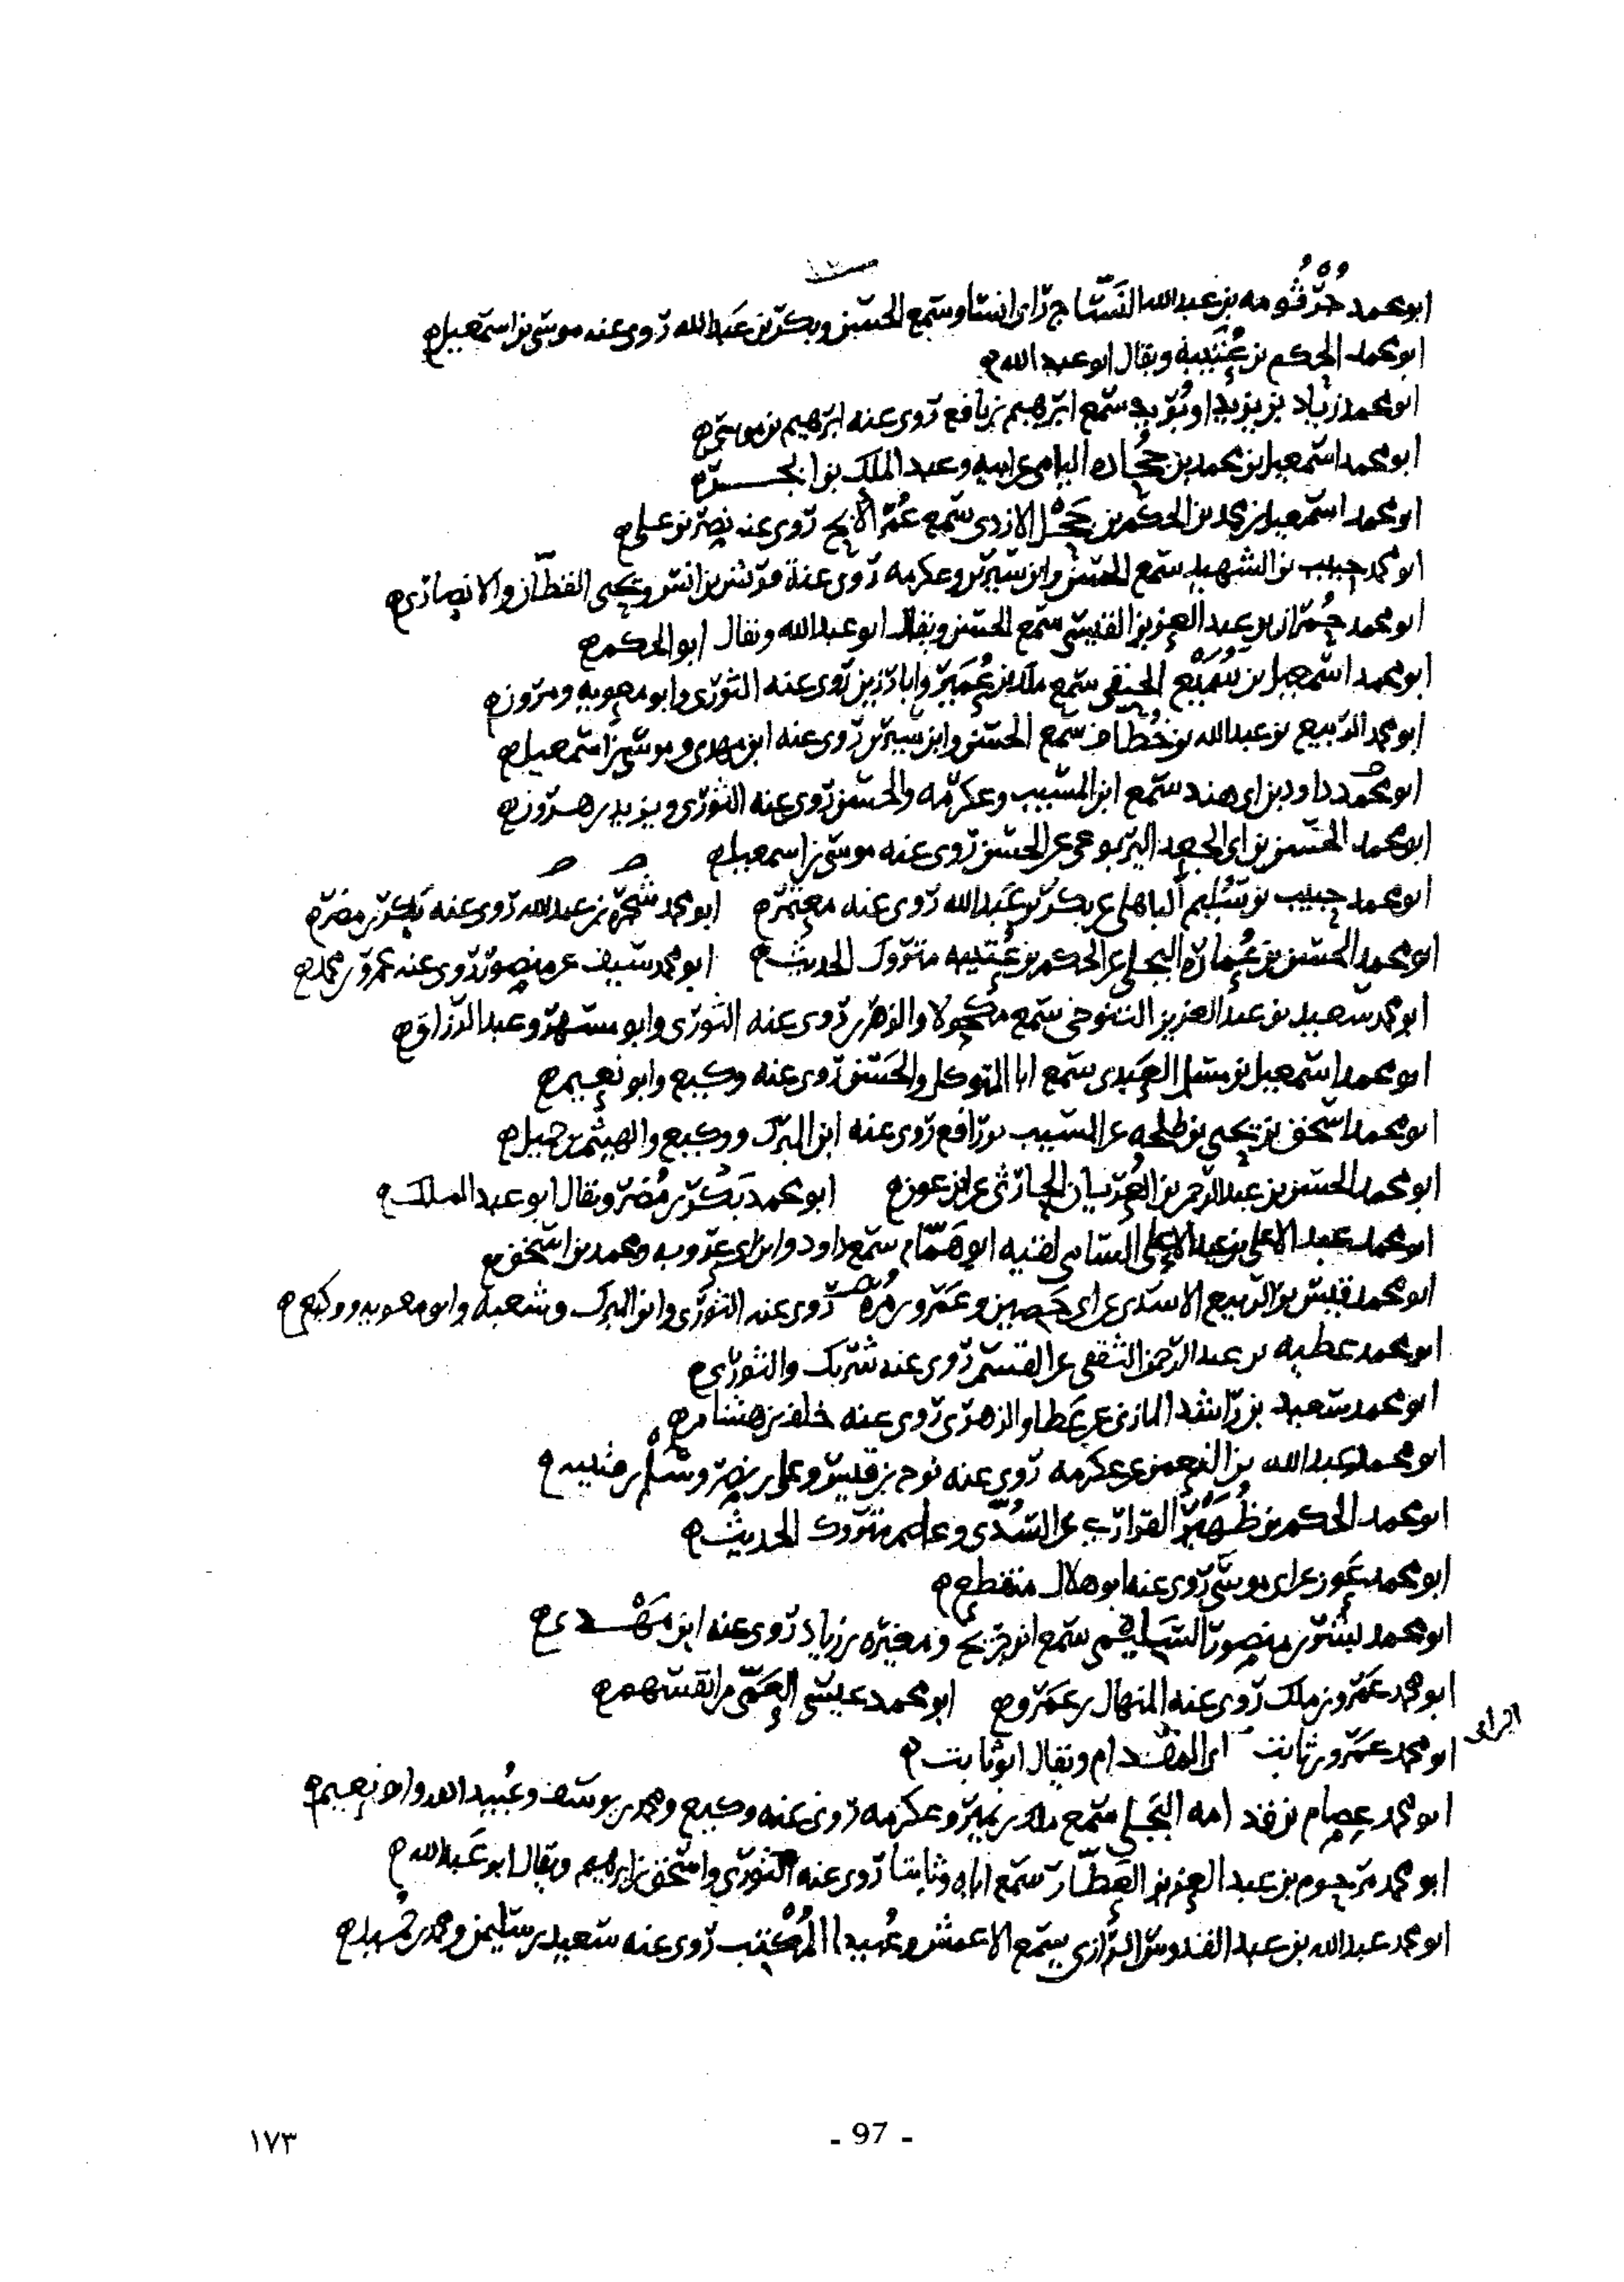 ابو محمد جُرْثُومه بن عبدالله النَسَّاج رَاى انسا وسَمع الحسَن وبكر بن عَبدالله رَوى عنه موسَى بن اسمَعيل ه
ابو محمد الحكم بن عُتَيبه ويقال ابو عبد الله ه
ابو محمد زياد بن يزيد او بُرَيد سمَع ابرَهيم بن نافع رَوى عنه ابرَهيم بن موسَى ه
ابو محمد اسمَعيل بن محمد بن جُحَاده اليامى عن ابيه وعبد الملك بن ابجر ه
ابو محمد اسمَعيل بن محمد بن الحكم بن جَحْل الازدى سمَع عُمَر الابح رَوى عنه نصر بن على ه
ابو محمد حبيب بن الشهيد سمَع الحسَن وابن سيرين وعكرمه رَوى عنه قريش بن انس ويحيى القطّان والانصارى ه
ابو محمد حُمرَان بن عبد العزيز القيسَى سمَع الحسَن ويقال ابو عبدالله ويقال ابو الحكم ه
ابو محمد اسمَعيل بن سُمَيْع الحنفى سمَع ملك بن عُمَير وابا رَزين رَوى عنه الثورَى وابو معويه ومرَوان ه
ابو محمد الرَبيع بن عبدالله بن خُطَّاف سمَع الحسَن وابن سيرَين رَوى عنه ابن مهدى وموسَى بن اسمَعيل ه
ابو محمد داود بن ابى هند سمَع ابن المسَيب وعكرمه والحسَن رَوى عنه الثورَى ويزيد بن هرَون ه
ابو محمد الحسَن بن ابى الجعد اليَربوعى عن الحسَن رَوى عنه موسَى بن اسمعيل ه
ابو محمد حبيب بن سُليم الباهلى عن بكر بن عَبدالله رَوى عنه معتمر ه ابو محمد شَجَرَه بن عبدالله رَوى عنه بَكر بن مضر ه
ابو محمد الحسَن بن عُمارَه البجلى عن الحكم بن عُتيبه متروك الحديث ه ابو محمد سَيف عن منصور رَوى عنه عمرو بن محمد ه
ابو محمد سَعيد بن عبد العزيز التنوخى سمَع مكحولا والزهرى رَوى عنه الثورَى وابو مسهرَ وعبد الرزاق ه
ابو محمد اسمَعيل بن مسلم العَبدى سمَع ابا المتوكل والحَسَن رَوى عنه وكيع وابو نعيم ه
ابو محمد اسحَق بن يحيى بن طلحه عن المسَيب بن رَافع رَوى عنه ابن المبرَك ووكيع والهيثم بن جميل ه
ابو محمد الحسَن بن عبد الرَحمن بن العُرْيان الحارَثى عن ابن عون ه ابو محمد بَكْر بن مُضر ويقال ابو عبد الملك ه
ابو محمد عبد الاعلى بن عبد الاعلى السَامى لقبه ابو هَمَّام سمَع داود وابن ابى عرَوبه ومحمد بن اسحَق ه
ابو محمد قيسَ بن الرَبيع الاسَدى عن ابى حَصين وعَمَرو بن مُرَّه رَوى عنه الثورَى وابن المبرَك وشعبه وابو معويه ووكيع ه
ابو محمد عطيه بن عبد الرَحمن الثقفى عن القسَم رَوى عنه شرَيك والثورَى ه
ابو محمد سَعيد بن رَاشد المازنى عن عَطا والزهرَى رَوى عنه خلف بن هشام ه
ابو محمد عبدالله بن النعمن عن عكرمه رَوى عنه نوح بن قيسَ وعلى بن نصرَ وسَلْم بن قتيبه ه
ابو محمد الحكم بن ظُهَيْر الفزارَى عن السُّدّى وعاصم متروك الحديث ه
ابو محمد عَون عن ابى موسَى رَوى عنه ابو هلال منقطع ه
ابو محمد بشرَ بن منصور السَليمى سمَع ابن جرَيج ومغيرَه بن زياد رَوى عنه ابن مَهْدى ه
ابو محمد عَمَرو بن ملك رَوى عنه المنهال بن عَمَرو ه ابو محمد عيسَى العَمّى عن القسَم ه
ابو محمد عمَرو بن ثابت ابن ابى المقدام ويقال ابو ثابت ه
ابو محمد عِصام بن قدامه البَجَلى سمَع ملك بن نميرَ وعكرمه رَوى عنه وكيع ومحمد بن يوسَف وعُبيد الله وابو نعيم ه
ابو محمد مرَحوم بن عبد العزيز العَطّار سمَع اباه وثابتا رَوى عنه الثورَى واسحَق بن ابرهيم ويقال ابو عَبدالله ه
ابو محمد عبدالله بن عبد القدوسَ الرَازى سمَع الاعمش وعُبيدا المُكْتب رَوى عنه سَعيد بن سَليمن ومحمد بن حُميد ه
١٧٣
- 97 -